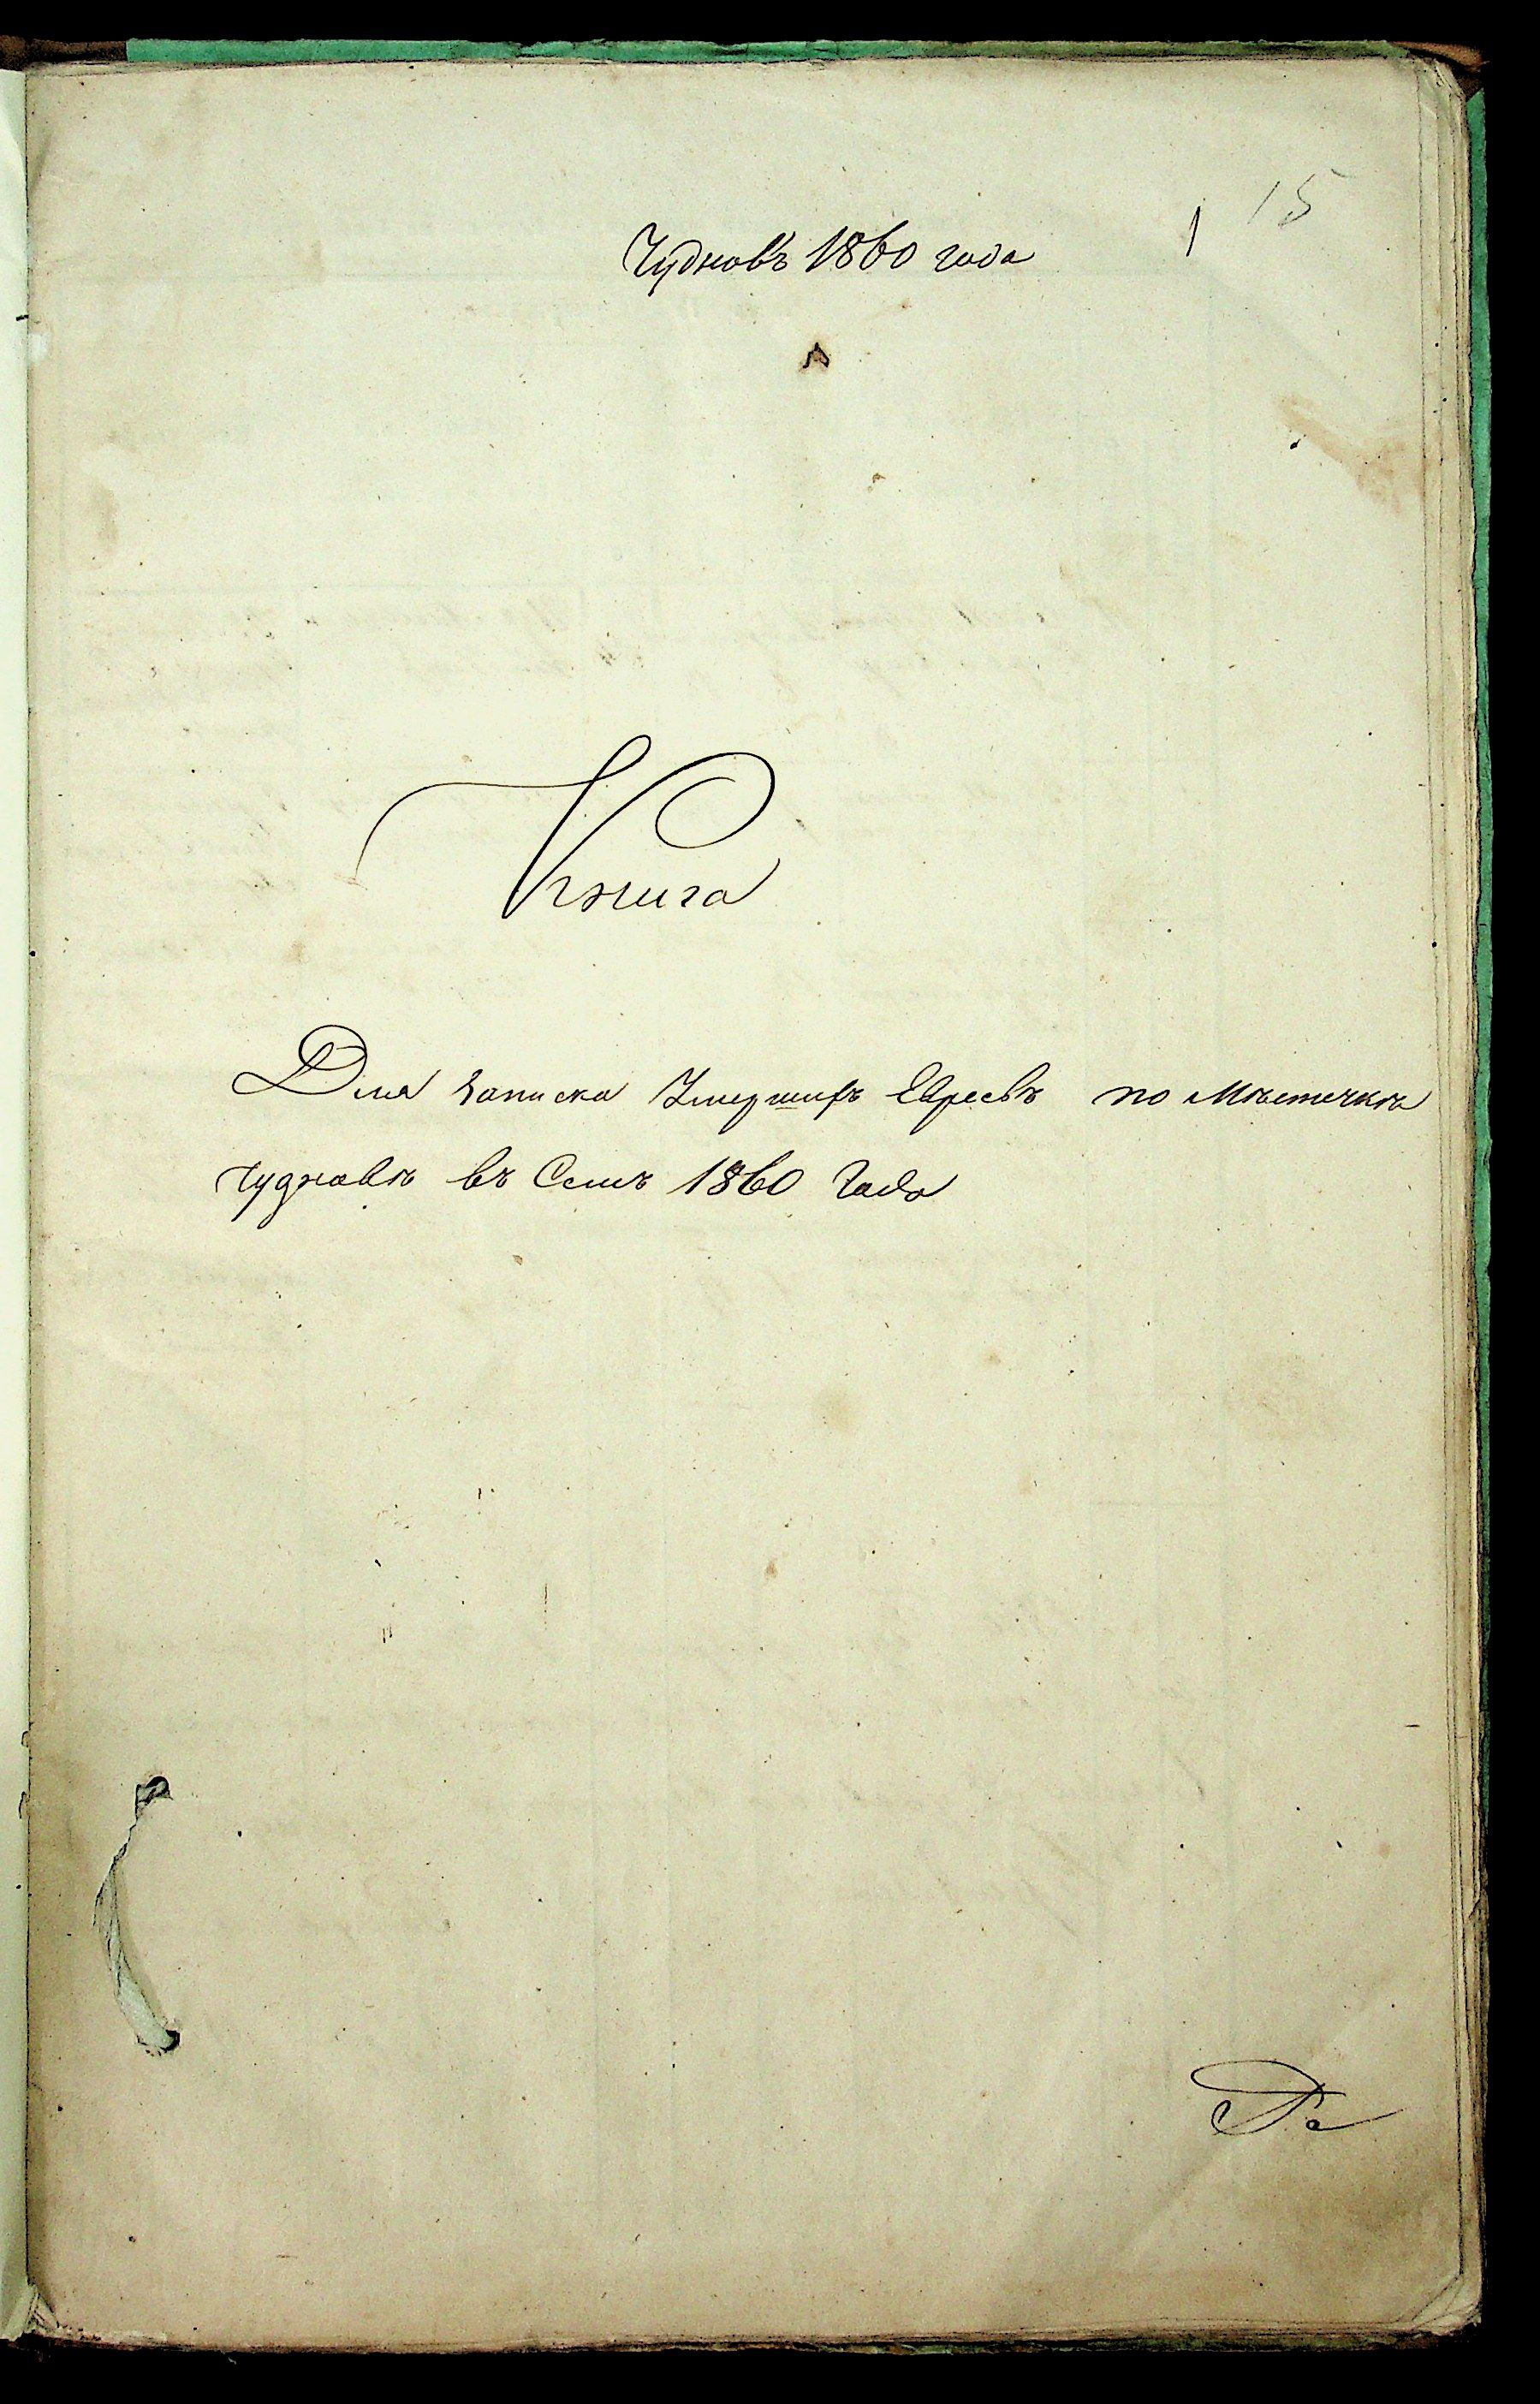 1 15
Чудновъ 1860 года
Книга
Для Записка Умершихъ Евреевъ по Мѣстечкѣ
Чудновѣ въ Семъ 1860 Года